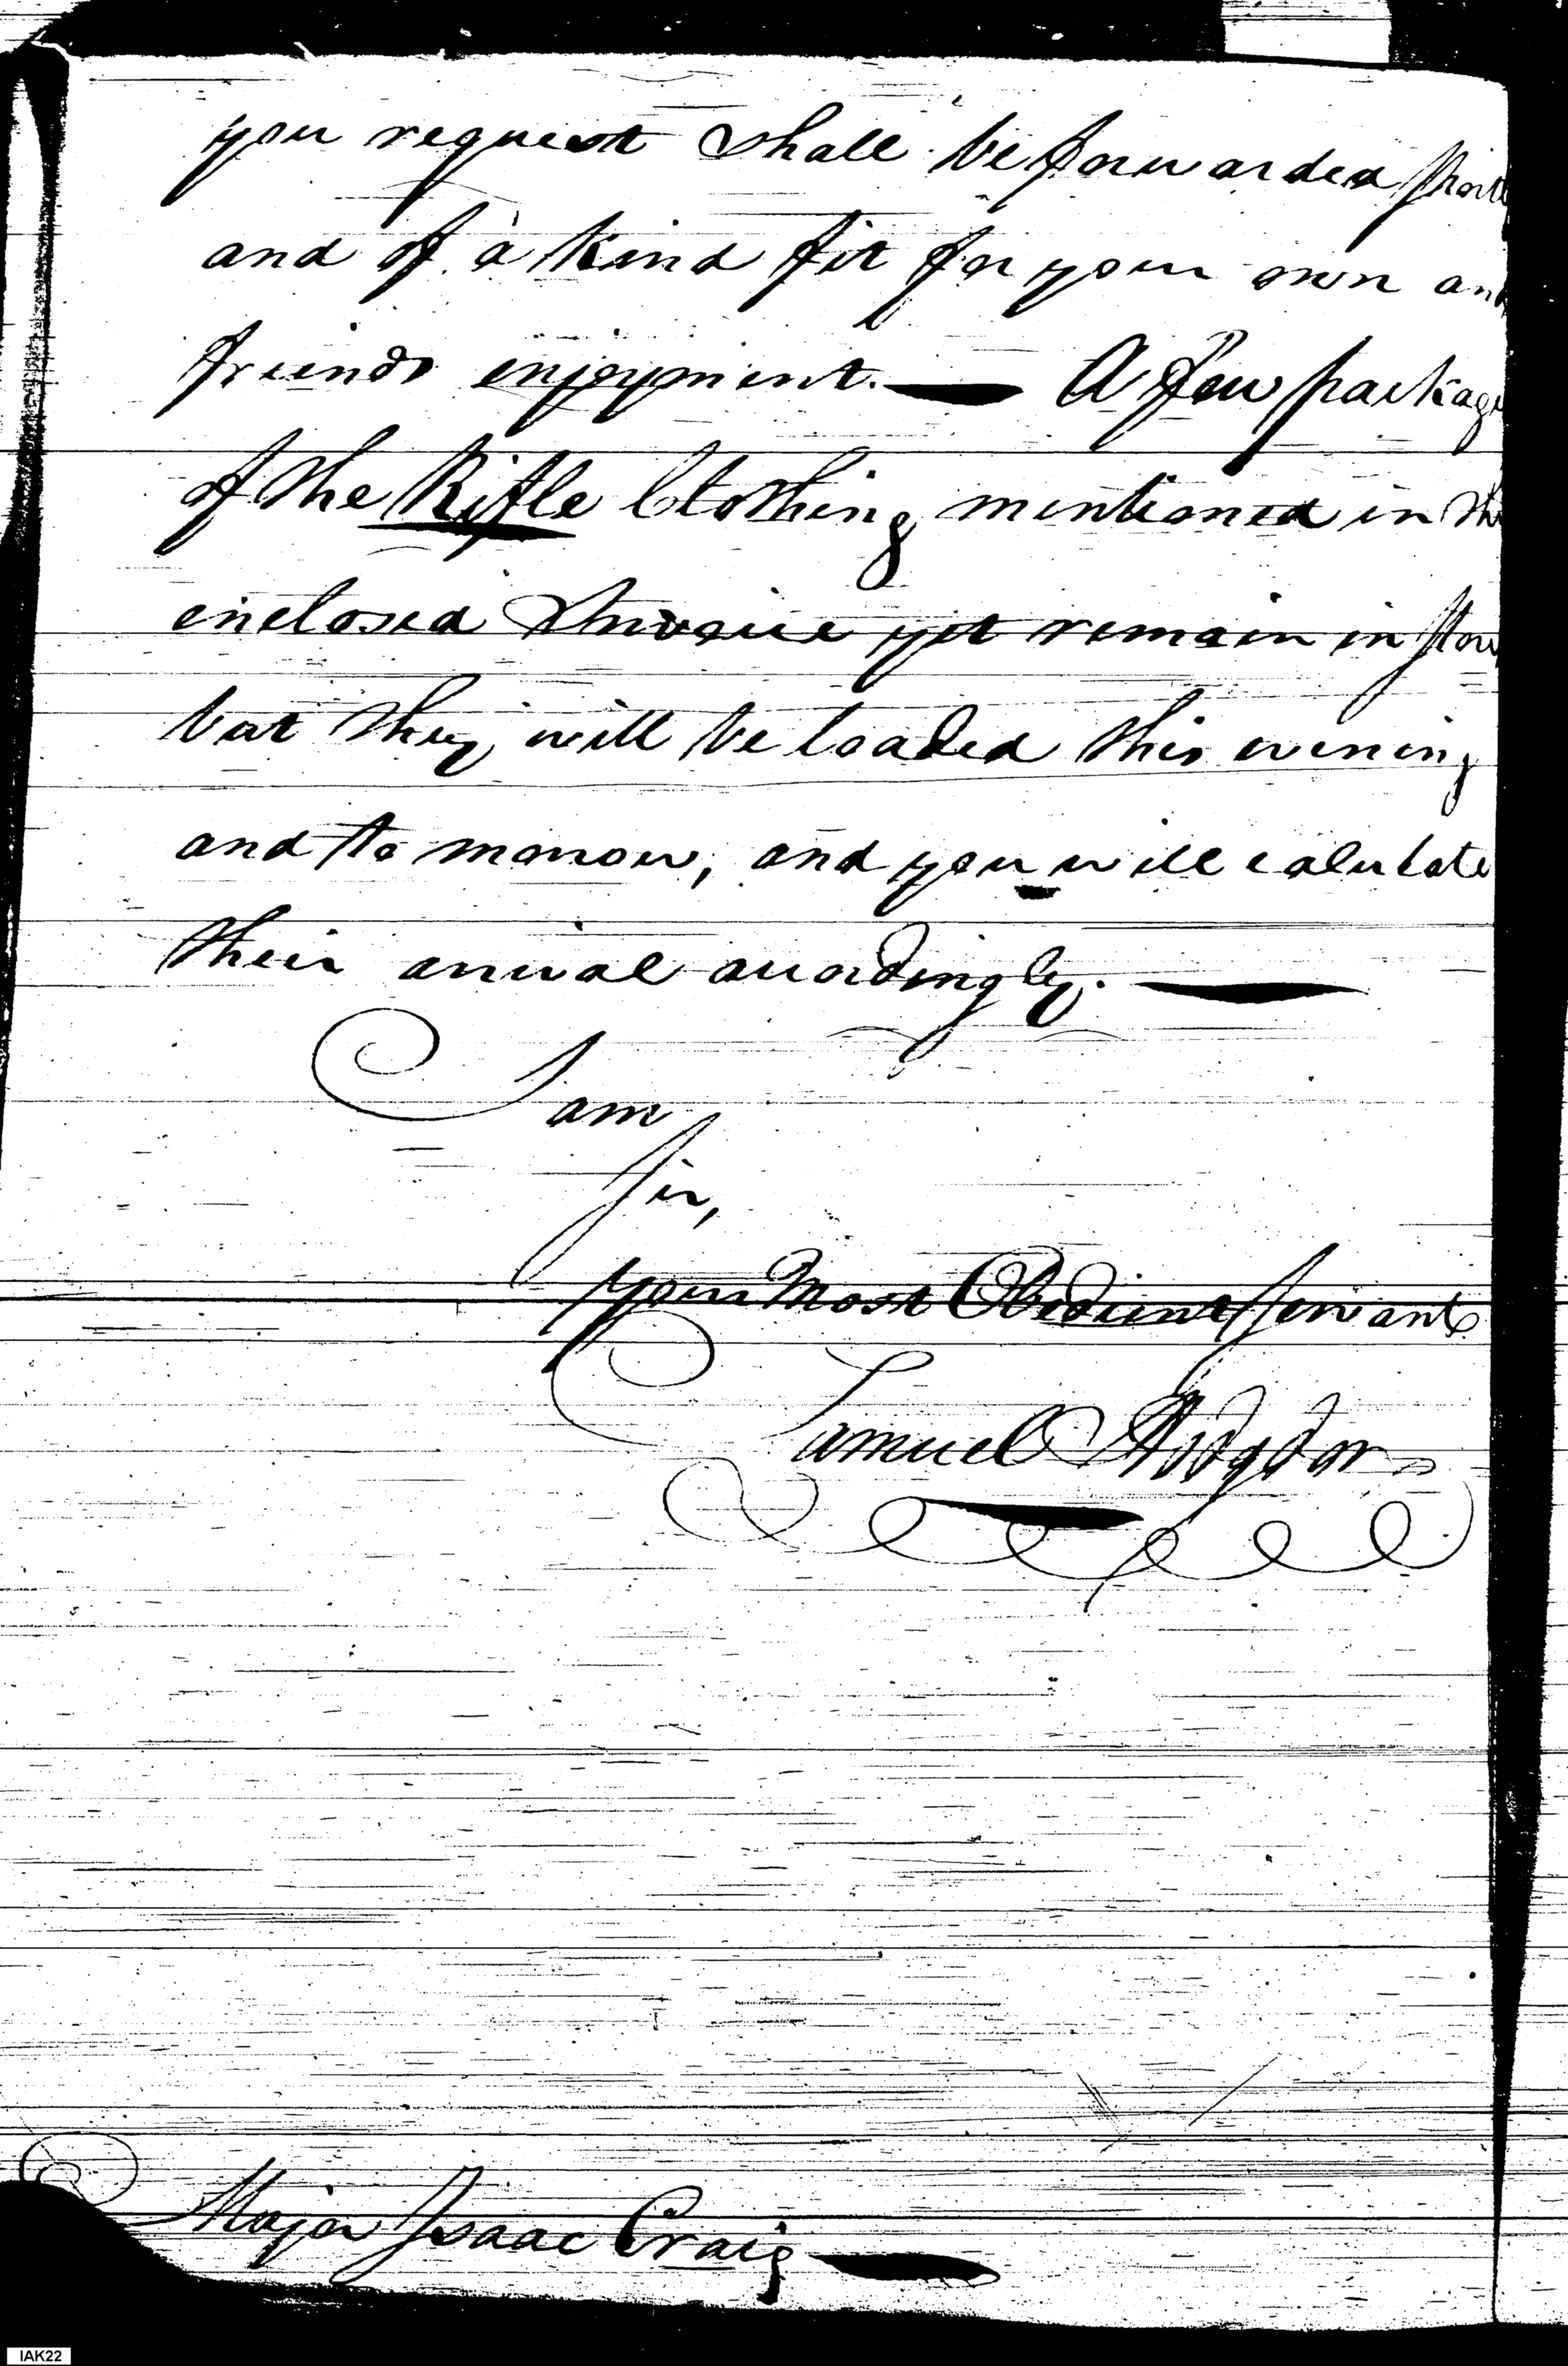 you request shall be forwarded short
and of a kind fit for your own and
freinds enjoyment. — A few package
of the Rifle Clothing mentioned in the
enclosed Invoice yet remain in stor
but they will be loaded this evening
and to morrow, and you will calculate
their arrival accordingly. —
I am
Sir,
your Most Obedient servant
Samuel Hodgdon
Major Isaac Craig —
IAK22